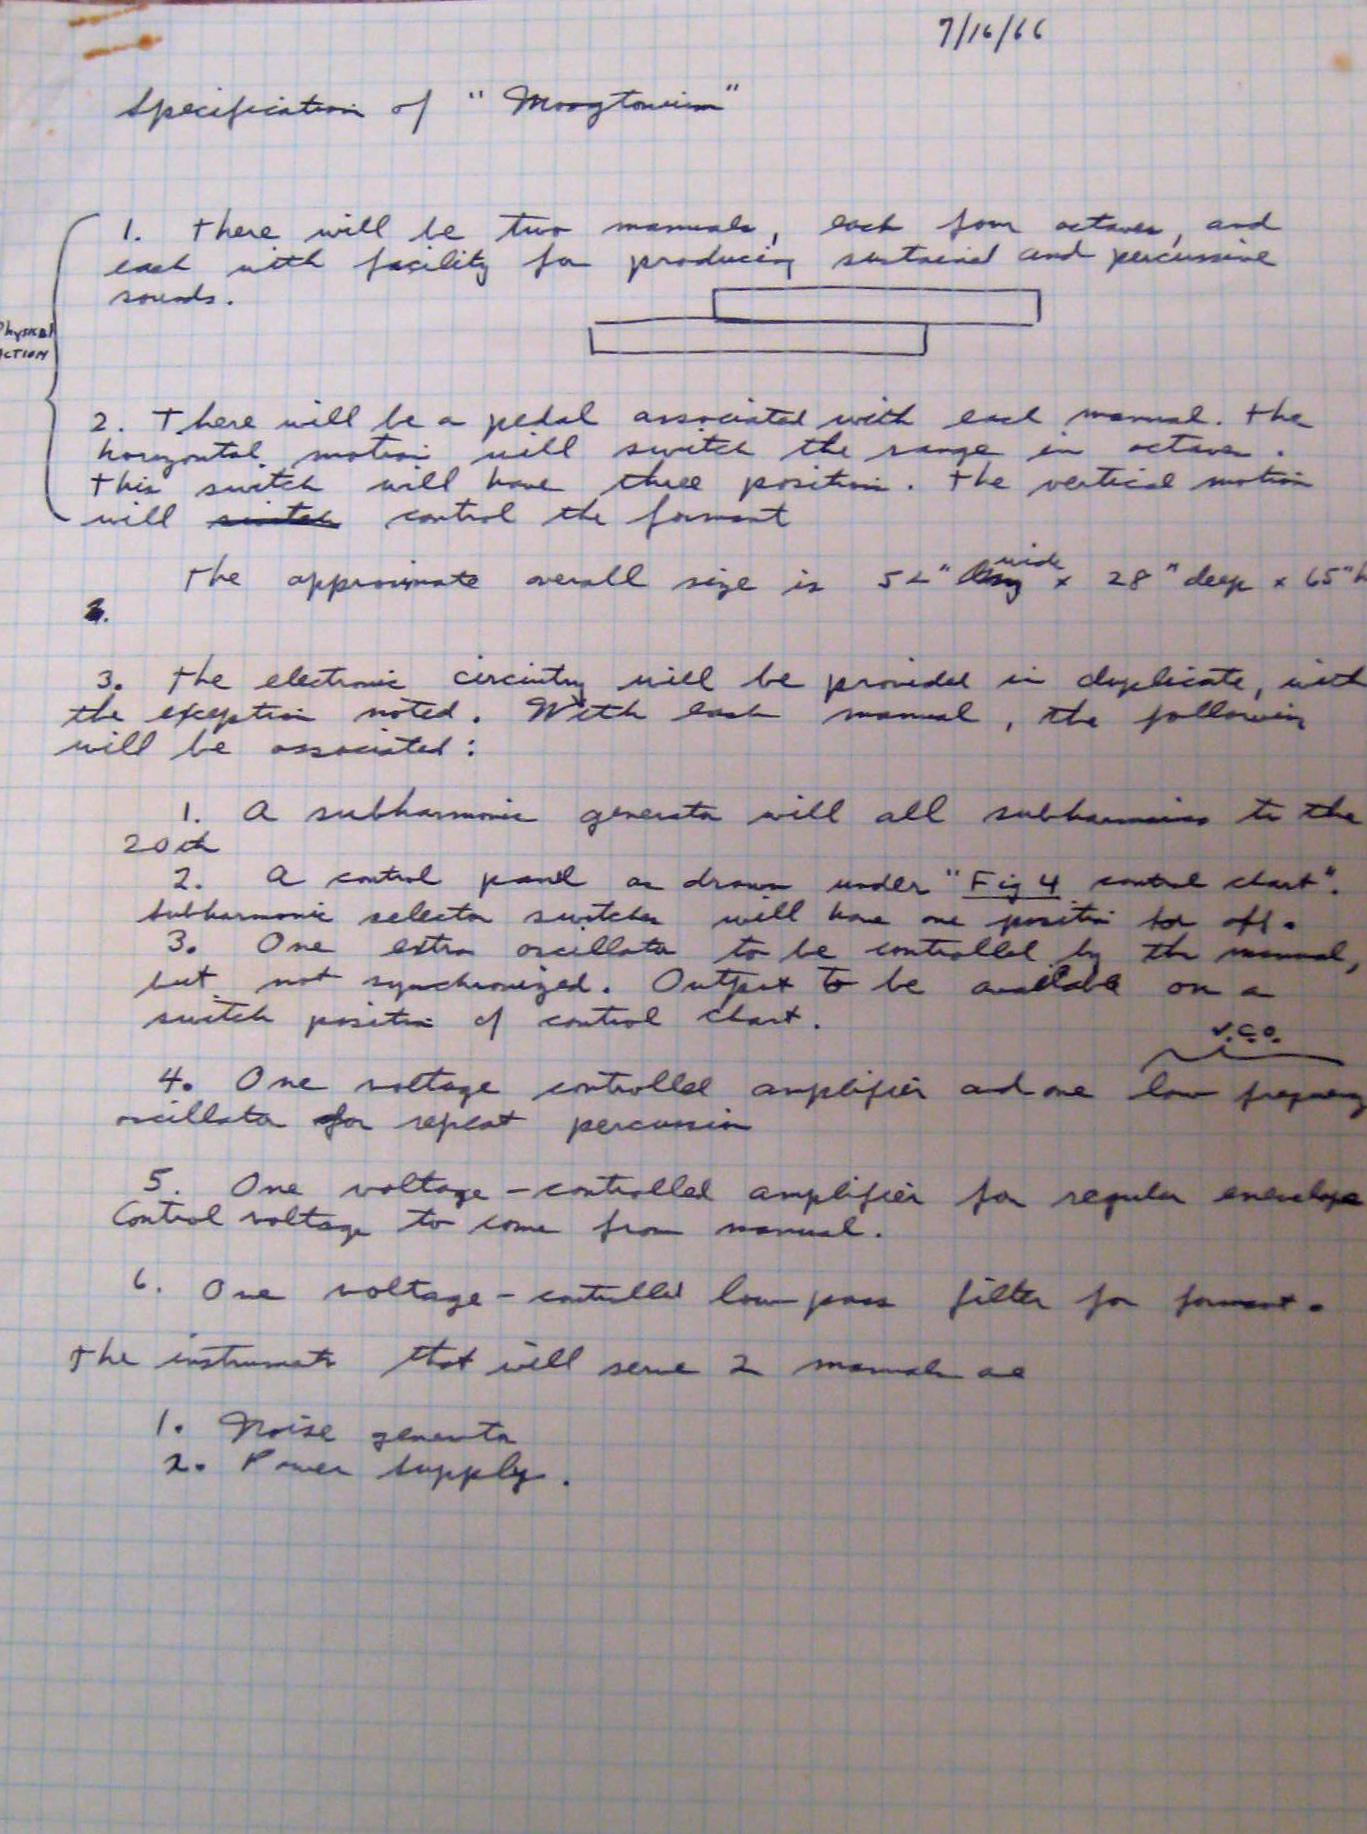 7/16/66
Specification of "Moogtonium"
1. There will be two manuals, each four octaves, and
each with facility for producing sustained and percussive
sounds.
Physical
Action
2. There will be a pedal associated with each manual. The
horizontal motion will switch the range in octaves.
This switch will have three positions. The vertical motion
will switch control the formant
The approximate overall size is 52" long wide x 28" deep x 65" h
3.
3. The electronic circuitry will be provided in duplicate, with
the exception noted. With each manual, the following
will be associated:
1. A subharmonic generator will all subharmonics to the
20th
2. A control panel as drawn under "Fig 4 control chart".
Subharmonic selector switches will have one position for off.
3. One extra oscillator to be controlled by the manual,
but not synchronized. Output to be available on a
switch position of control chart.
V.C.O.
4. One voltage controlled amplifier and one low frequency
oscillator for repeat percussion
5. One voltage-controlled amplifier for regular enevelope
Control voltage to come from manual.
6. One voltage-controlled low pass filter for formant.
The instruments that will serve 2 manuals are
1. Noise generator
2. Power supply.